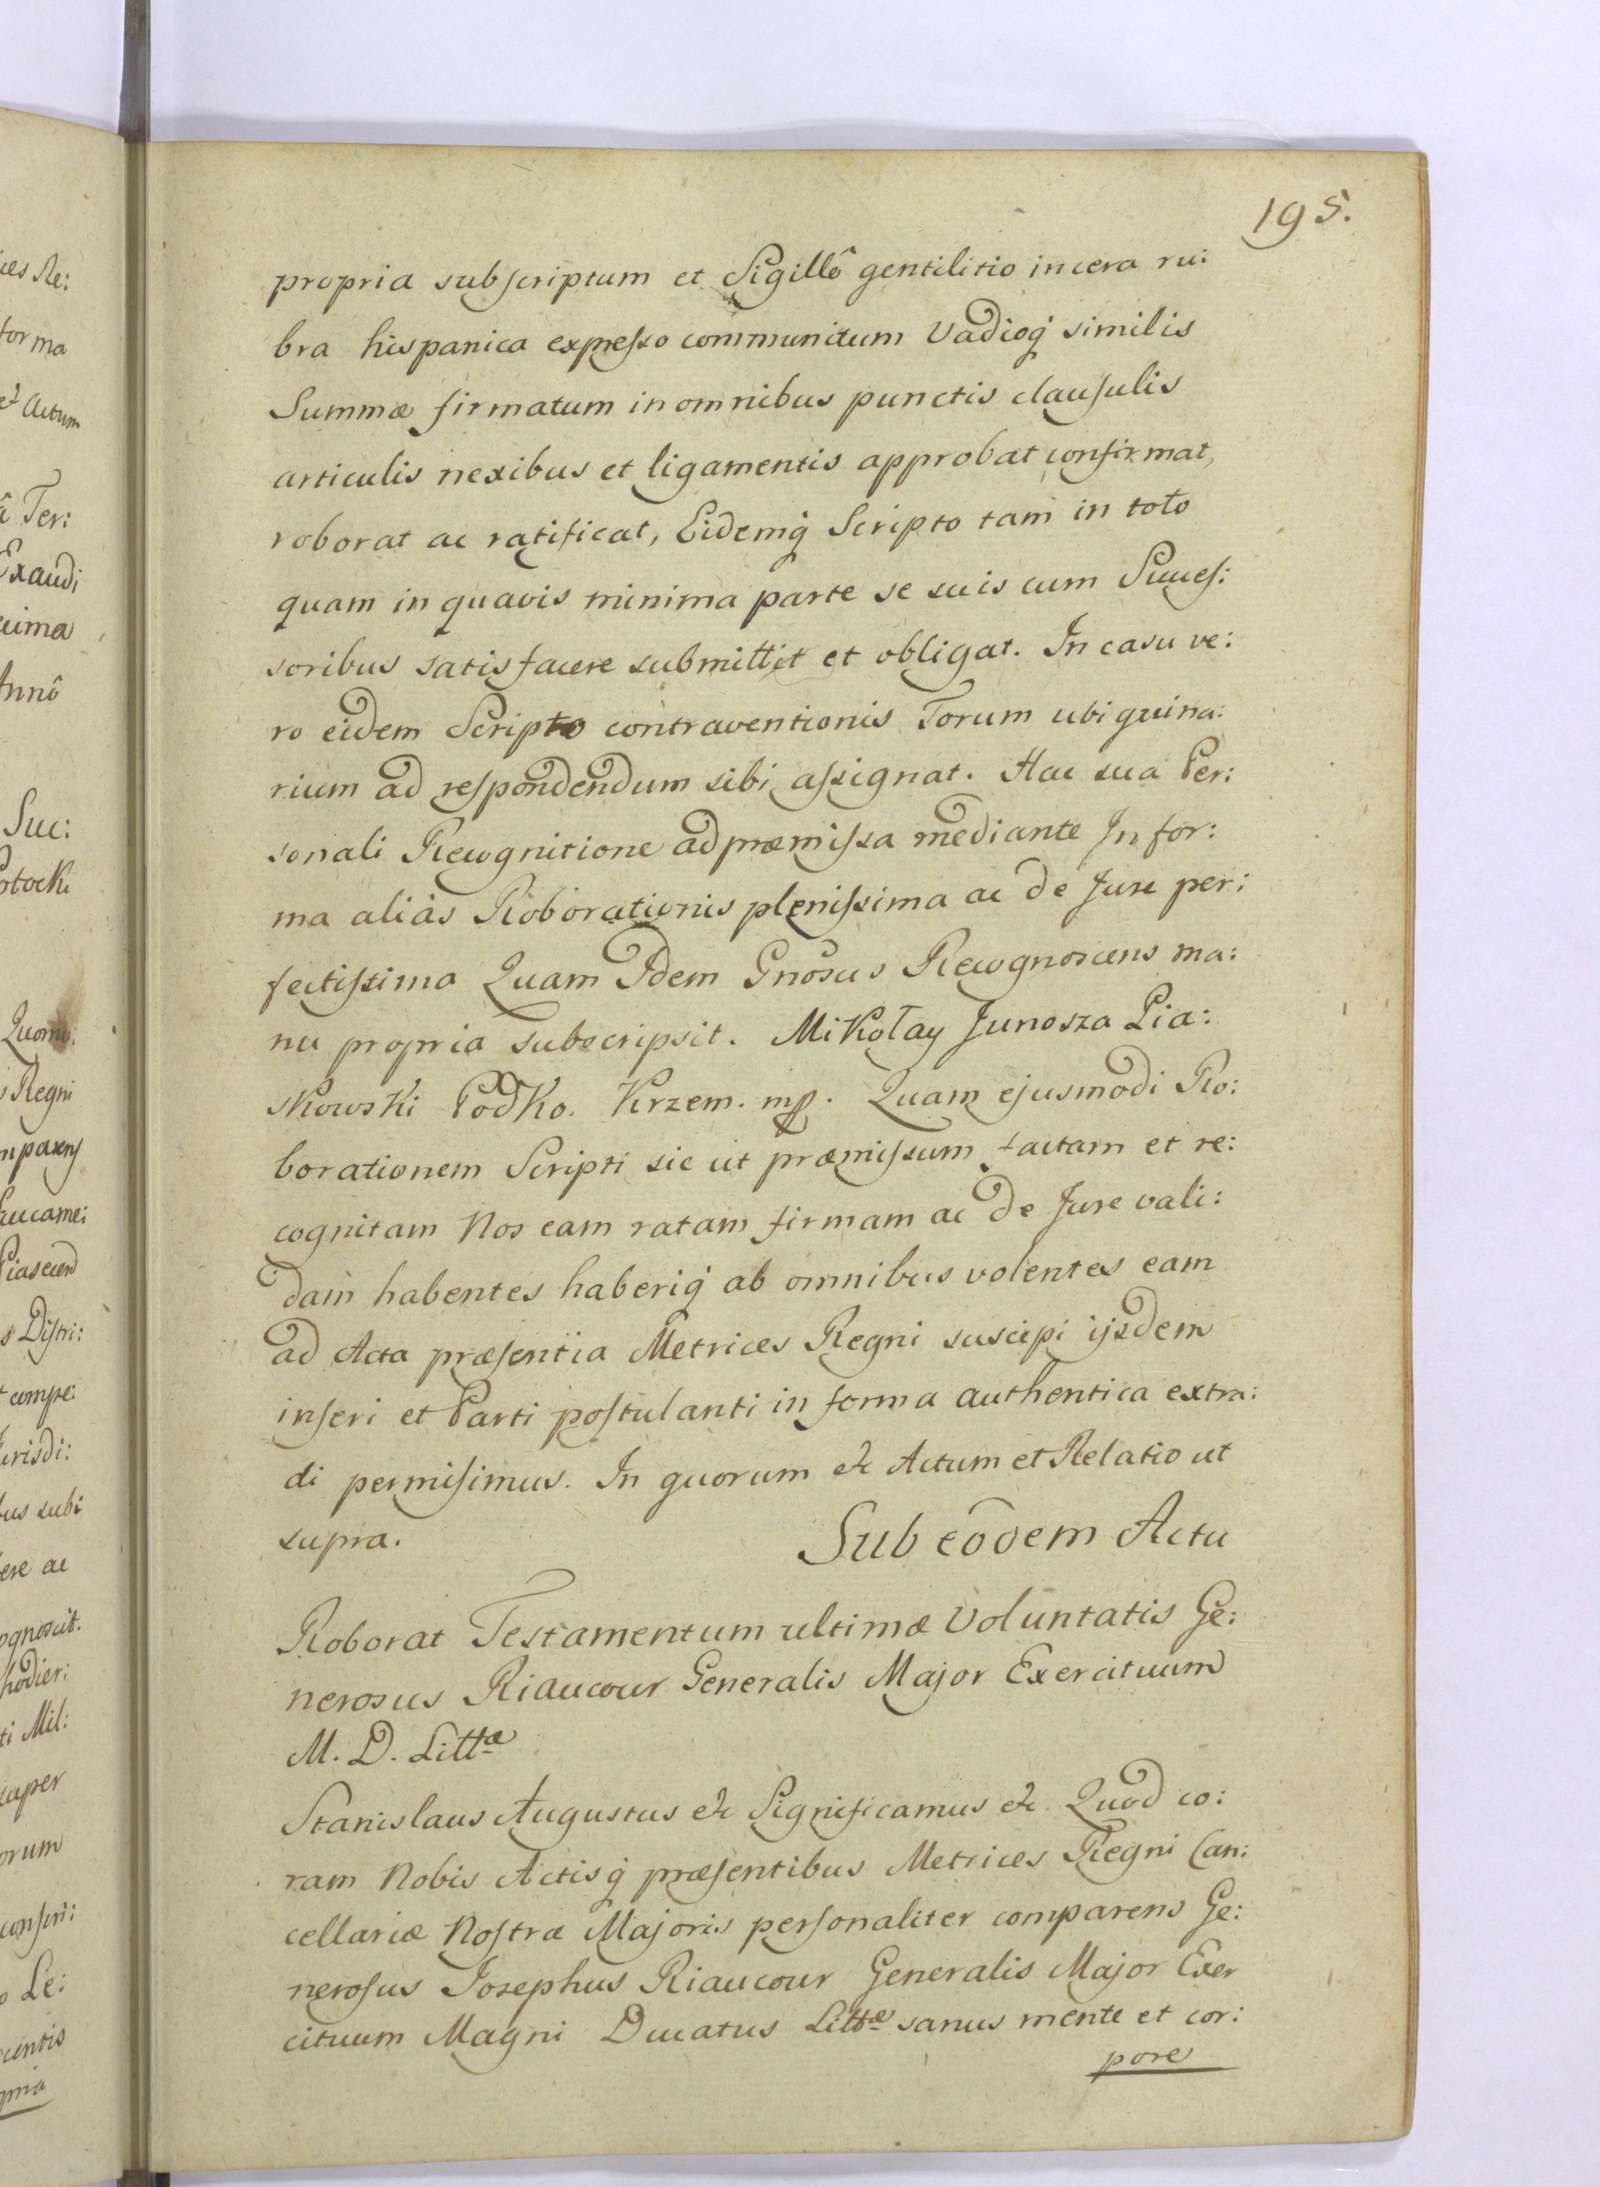 195.
propria subscriptum et Sigillô gentilitio in cera ru:
bra hispanica expresso communitum Vadioq̀ similis
Summæ firmatum in omnibus punctis clausulis
articulis nexibus et ligamentis approbat confirmat,
roborat ac ratificat, Eidemq̀ Scripto tam in toto
quam in quavis minima parte se suis cum Succes:
soribus satisfacere submittit et obligat. In casu ve:
ro eidem Scripto contraventionis Forum ubiquina:
rium ad respondendum sibi assignat. Hac sua Per:
sonali Recognitione ad præmissa mediante In for:
ma aliàs Roborationis plenissima ac de Jure per:
fectissima Quam Idem Gnosus Recognoscens ma:
nu propria subscripsit. Mikołay Junosza Pia:
skowski Podko. Krzem. mp. Quam ejusmodi Ro:
borationem Scripti sic ut præmissum factam et re:
cognitam Nos eam ratam firmam ac de Jure vali:
dam habentes haberiq̀ ab omnibus volentes eam
ad Acta præsentia Metrices Regni suscipi ijsdem
inseri et Parti postulanti in forma authentica extra:
di permisimus. In quorum &c Actum et Relatio ut
supra.
Sub eodem Actu
Roborat Testamentum ultimæ Voluntatis Ge:
nerosus Riaucour Generalis Major Exercituum
M. D. Littæ
Stanislaus Augustus &c Significamus &c Quod co:
ram Nobis Actisq̀ præsentibus Metrices Regni Can:
cellariæ Nostræ Majoris personaliter comparens Ge:
nerosus Josephus Riaucour Generalis Major Exer
cituum Magni Ducatus Littæ sanus mente et cor:
pore